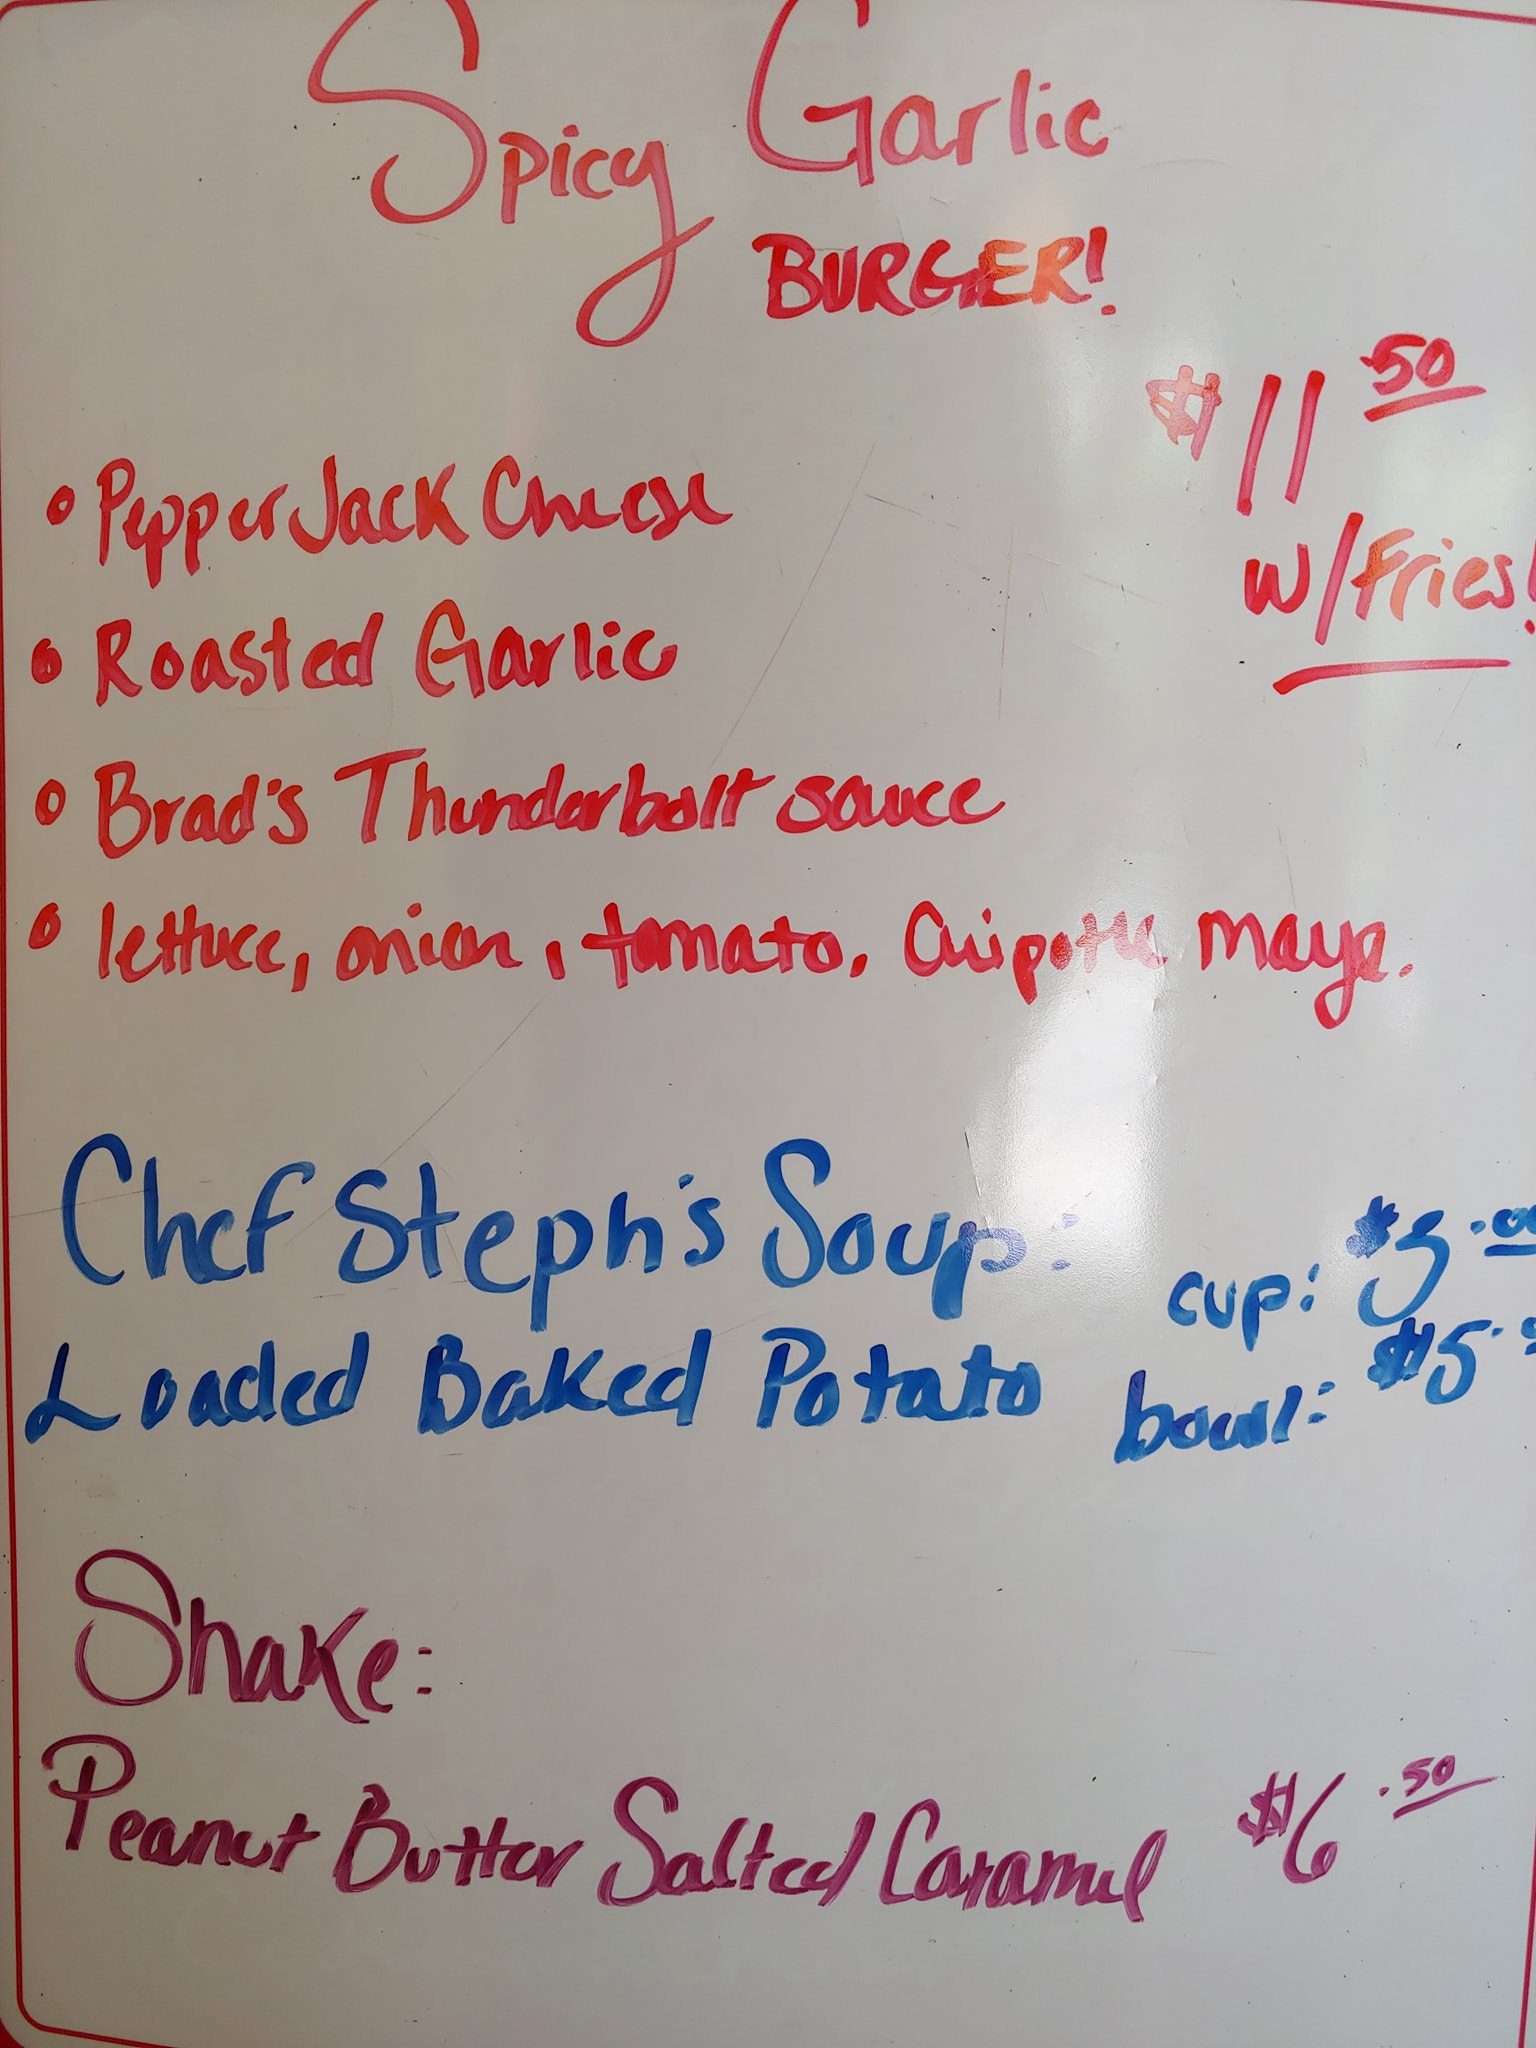 Spicy Garlic
BURGER!
$11.50
w/Fries!
• Pepper Jack Cheese
• Roasted Garlic
• Brad's Thunderbolt sauce
• lettuce, onion, tomato, Chipotle mayo.
Chef Steph's Soup:
cup:
Loaded Baked Potato
bowl: $5.
Shake:
Peanut Butter Salted Caramel $6.50